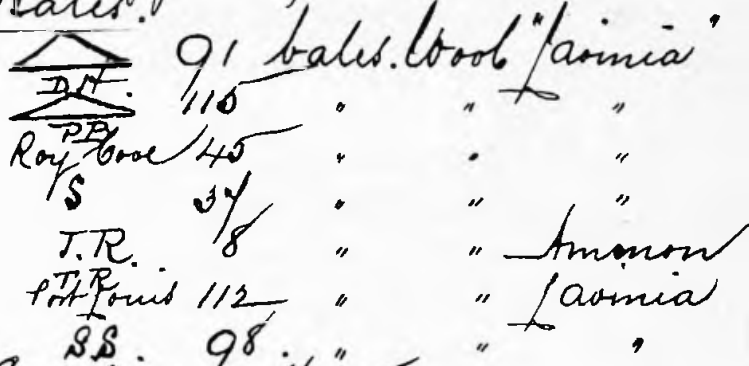 Bales.
91 bales. Wool "Lavinia"
D.H. 115 " " "
P B
Roy Cove 45 " " "
S 37 " " "
J.R. 8 " " Ammon
T.R.
Port Louis 112 " " Lavinia
S.S. 98. " " "